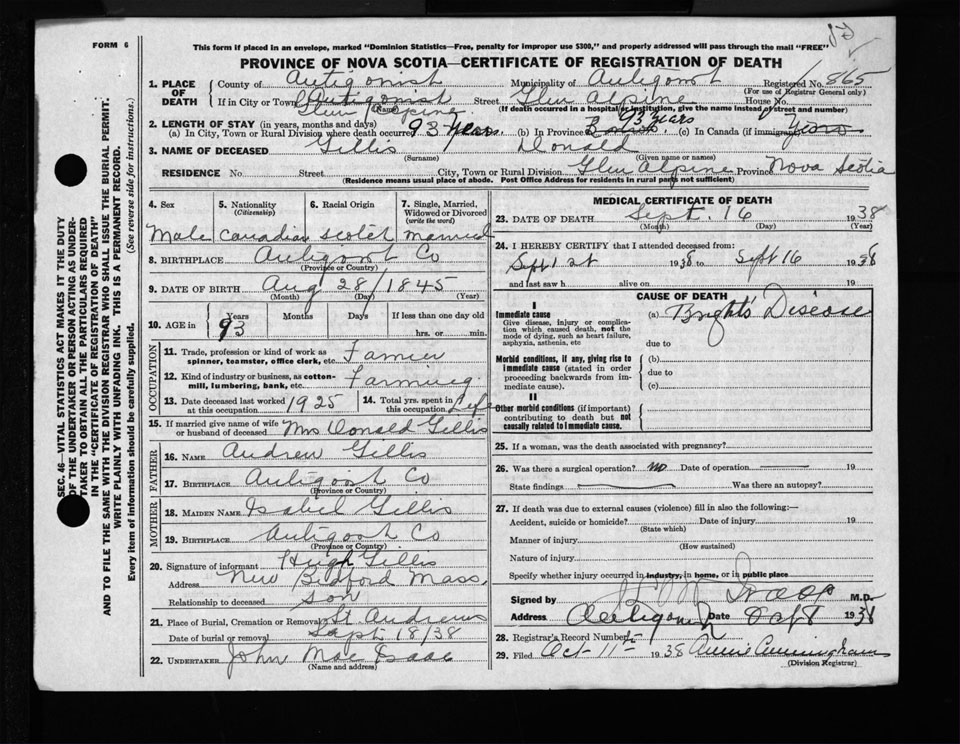 FORM 6
This form if placed in an envelope, marked "Dominion Statistics—Free, penalty for improper use $300," and properly addressed will pass through the mail "FREE"
PROVINCE OF NOVA SCOTIA—CERTIFICATE OF REGISTRATION OF DEATH
1. PLACE OF DEATH County of Antigonish Municipality of Antigonish Registered No. 865
(For use of Registrar General only)
If in City or Town Antigonish Street Glen Alpine House No.
Glen Alpine (Name) (If death occurred in a hospital or institution, give the name instead of street and number)
2. LENGTH OF STAY (in years, months and days) 93 years
(a) In City, Town or Rural Division where death occurred 93 Years. (b) In Province (c) In Canada (if immigrant) Years
3. NAME OF DECEASED Gillis Donald
(Surname) (Given name or names)
RESIDENCE No. Street City, Town or Rural Division Glen Alpine Province Nova Scotia
(Residence means usual place of abode. Post Office Address for residents in rural parts not sufficient)
4. Sex 5. Nationality (Citizenship) 6. Racial Origin 7. Single, Married, Widowed or Divorced (write the word)
Male Canadian Scotch Married
8. BIRTHPLACE Antigonish Co
(Province or Country)
9. DATE OF BIRTH Aug 28/1845
(Month) (Day) (Year)
10. AGE in Years Months Days If less than one day old
93 hrs. or min.
OCCUPATION
11. Trade, profession or kind of work as spinner, teamster, office clerk, etc. Farmer
12. Kind of industry or business, as cotton-mill, lumbering, bank, etc. Farming.
13. Date deceased last worked at this occupation 1925 14. Total yrs. spent in this occupation Life
15. If married give name of wife or husband of deceased Mrs Donald Gillis
FATHER
16. NAME Andrew Gillis
17. BIRTHPLACE Antigonish Co
(Province or Country)
MOTHER
18. MAIDEN NAME Isabel Gillis
19. BIRTHPLACE Antigonish Co
(Province or Country)
20. Signature of informant Hugh Gillis
Address New Bedford Mass.
Relationship to deceased son
21. Place of Burial, Cremation or Removal St Andrews
Date of burial or removal Sept 18/38
22. UNDERTAKER John Mac Isaac
(Name and address)
MEDICAL CERTIFICATE OF DEATH
23. DATE OF DEATH Sept. 16 1938
(Month) (Day) (Year)
24. I HEREBY CERTIFY that I attended deceased from:
Sept 1st 1938 to Sept 16 1938
and last saw h alive on 19
CAUSE OF DEATH
I
Immediate cause (a) Bright's Disease
Give disease, injury or complication which caused death, not the mode of dying, such as heart failure, asphyxia, asthenia, etc
due to
Morbid conditions, if any, giving rise to immediate cause (stated in order proceeding backwards from immediate cause).
(b)
due to
(c)
II
Other morbid conditions (if important) contributing to death but not causally related to immediate cause.
25. If a woman, was the death associated with pregnancy?
26. Was there a surgical operation? no Date of operation 19
State findings Was there an autopsy?
27. If death was due to external causes (violence) fill in also the following:—
Accident, suicide or homicide? Date of injury 19
(State which)
Manner of injury
(How sustained)
Nature of injury
Specify whether injury occurred in industry, in home, or in public place
Signed by M.D.
Address Antigonish Date Oct 8 1938
28. Registrar's Record Number
29. Filed Oct-11th 1938 Annie Cunningham
(Division Registrar)
SEC. 46—VITAL STATISTICS ACT MAKES IT THE DUTY
OF THE UNDERTAKER OR PERSON ACTING AS UNDER-
TAKER TO OBTAIN ALL THE PARTICULARS REQUIRED
IN THE "CERTIFICATE OF REGISTRATION OF DEATH"
AND TO FILE THE SAME WITH THE DIVISION REGISTRAR WHO SHALL ISSUE THE BURIAL PERMIT.
WRITE PLAINLY WITH UNFADING INK. THIS IS A PERMANENT RECORD.
Every item of information should be carefully supplied. (See reverse side for instructions.)